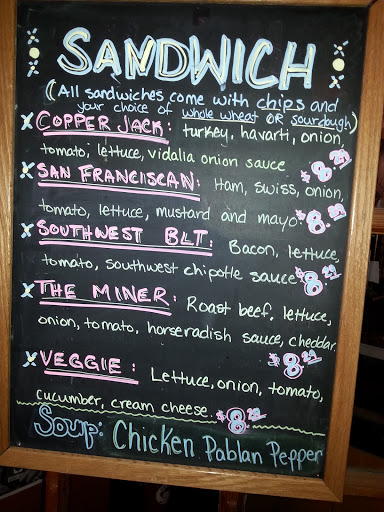 SANDWICH
(All sandwiches come with chips and
your choice of whole wheat OR sourdough)
x COPPER JACK: turkey, havarti, onion,
tomato, lettuce, vidalia onion sauce
x SAN FRANCISCAN: Ham, Swiss, onion,
tomato, lettuce, mustard and mayo.
x SOUTHWEST BLT: Bacon, lettuce,
tomato, southwest chipotle sauce
x THE MINER: Roast beef, lettuce,
onion, tomato, horseradish sauce, cheddar.
x VEGGIE: Lettuce, onion, tomato,
cucumber, cream cheese.
Soup: Chicken Pablan Pepper